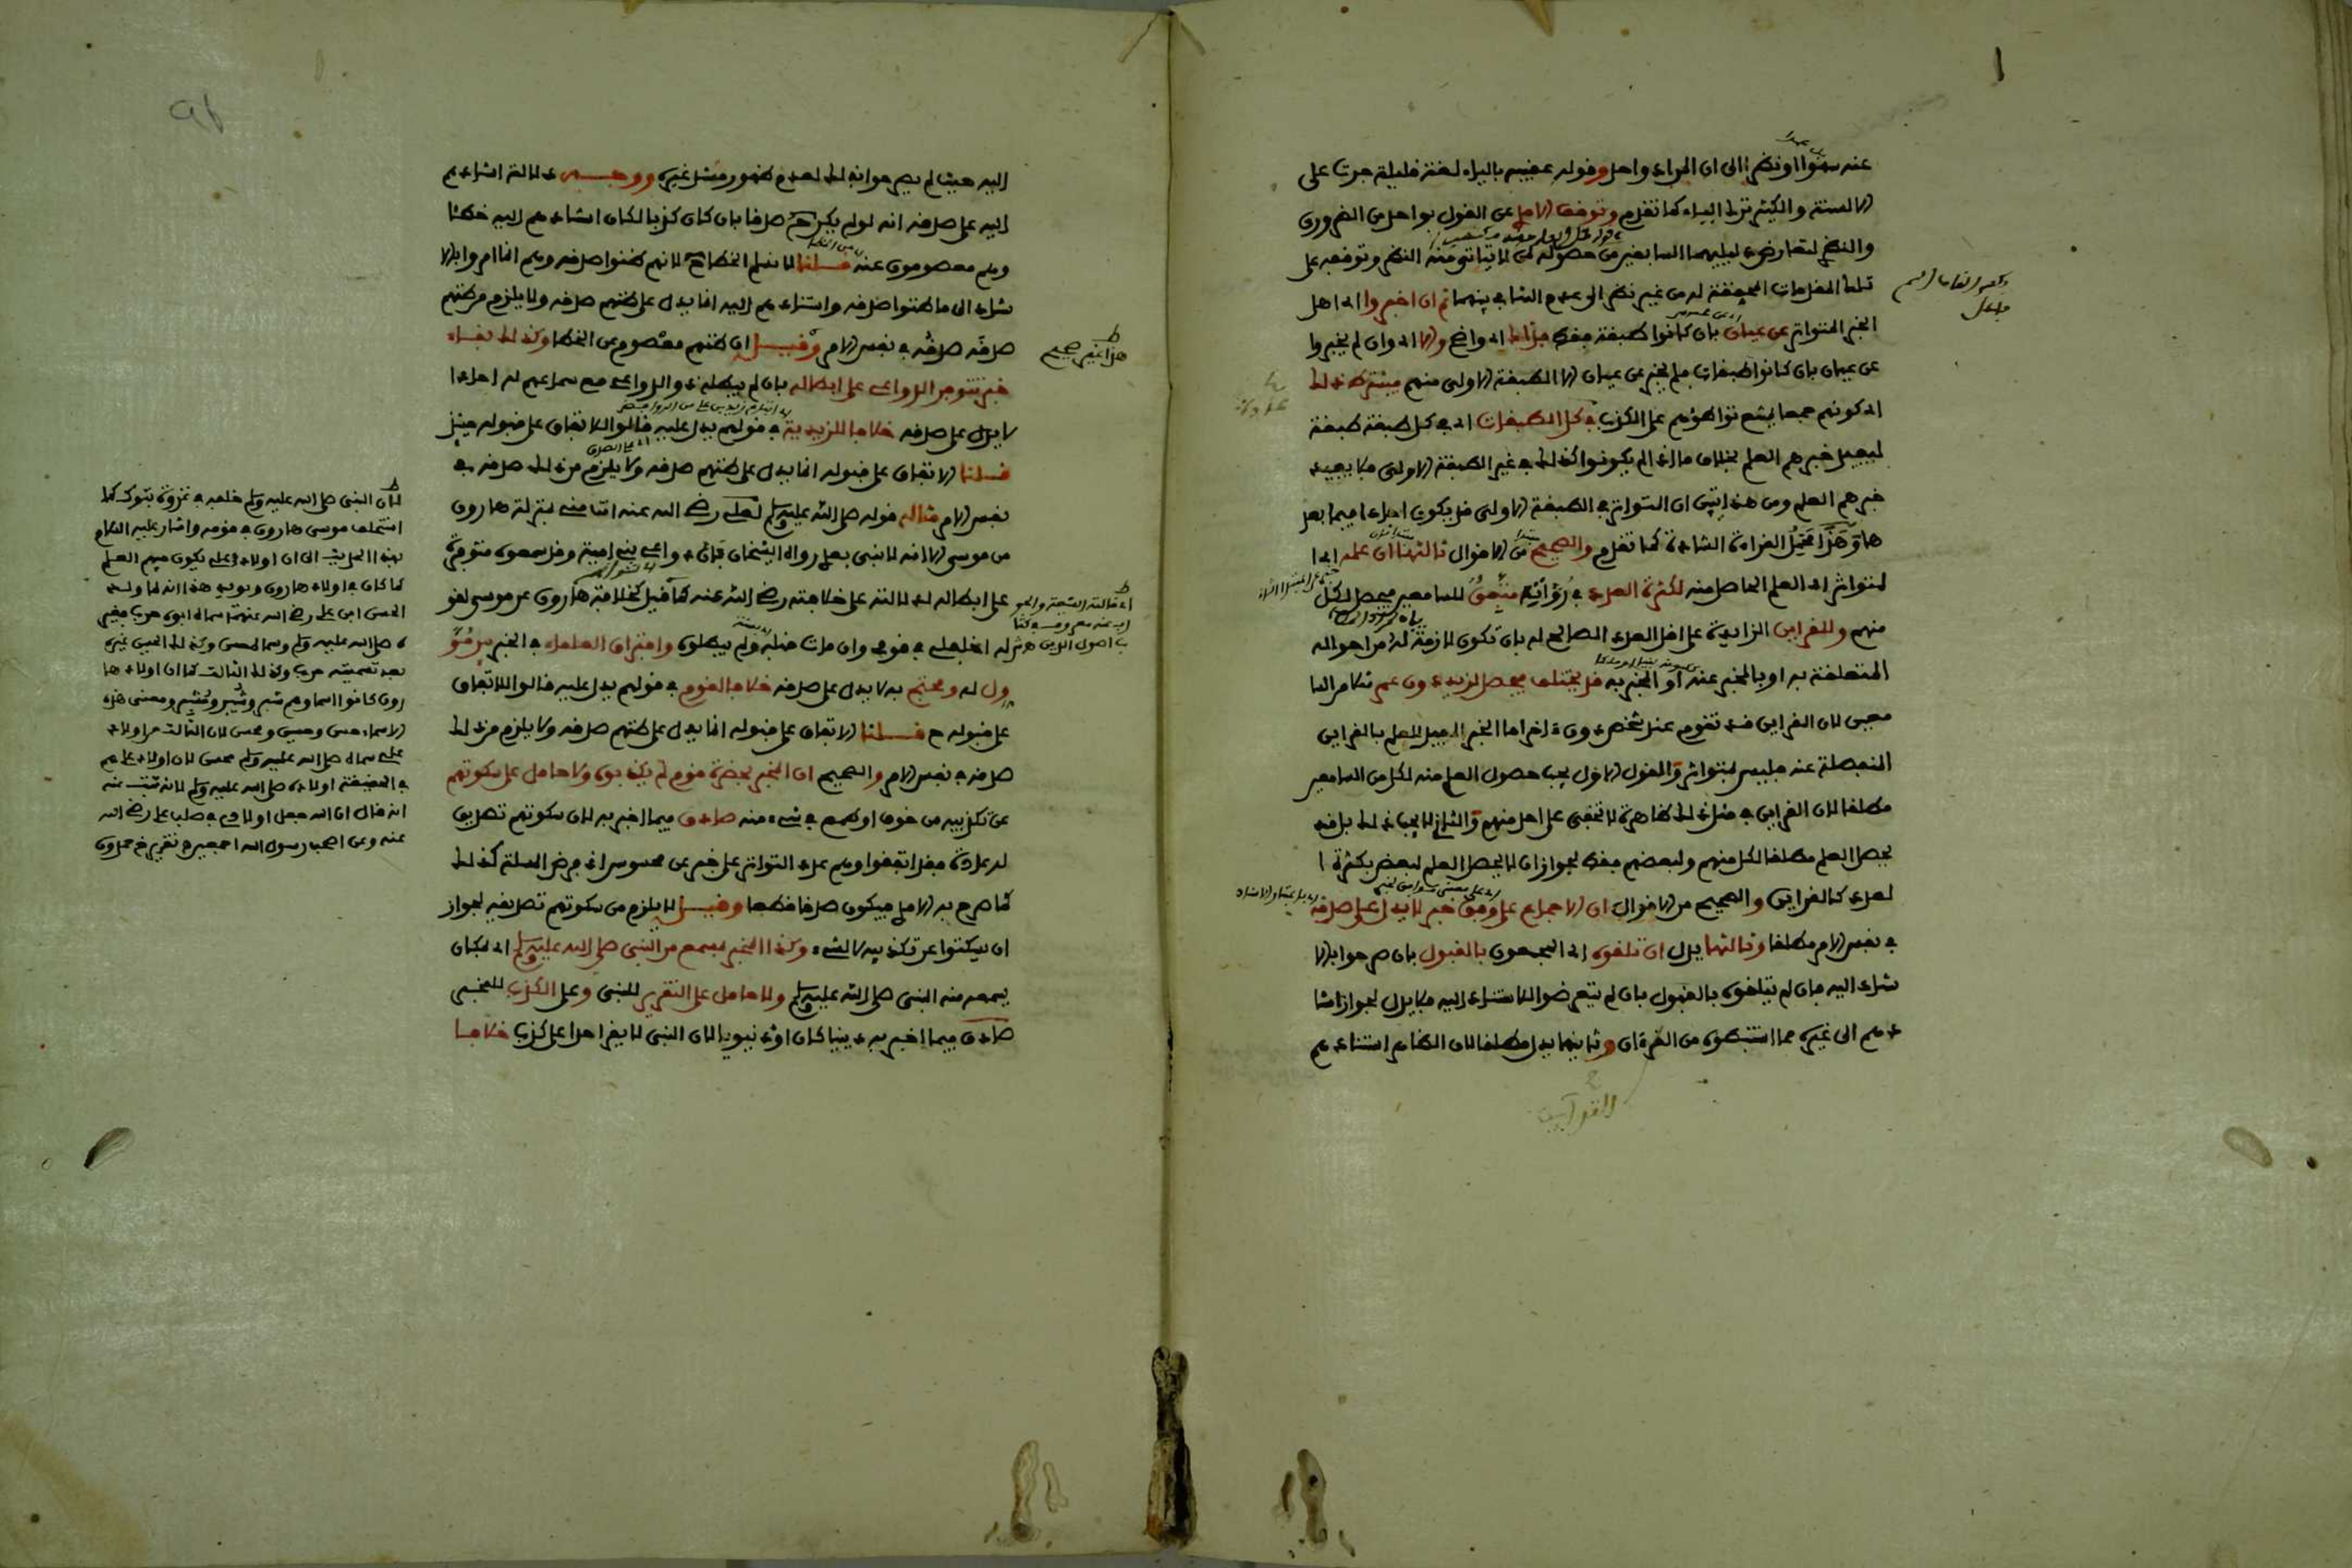 عنه سهوا او نظرا الى ان المراد واحد وقوله عقيبه بالياء لغة قليلة جرت على
الالسنة والكثير ترك الياء كما تقدم وتوقف الامدي عن القول بواحد من الضروري
والنظري لتعارض دليليهما السابقين من حصوله لمن لا يتاتى منه النظر وتوقفه على
تلك المقدمات المحققة له من غير نظر الى عدم التنافي بينهما ثم ان اخبروا اي اهل
الخبر المتواتر عن عيان بان كانوا طبقة فقط فذاك اي واضح والا اي وان لم يخبروا
عن عيان بان كانوا طبقات فلم يخبر عن عيان الا الطبقة الاولى منهم فيشترط ذلك
اي كونهم جمعا يمتنع تواطؤهم على الكذب في كل الطبقات اي في كل طبقة طبقة
ليفيد خبرهم العلم بخلاف ما اذا لم يكونوا كذلك في غير الطبقة الاولى فلا يفيد
خبرهم العلم ومن هذا يتبين ان المتواتر في الطبقة الاولى قد يكون احادا فيما بعد
ها وهذا محمل القراءة الشاذة كما تقدم والصحيح من الاقوال ثالثها ان علمه اي ا
لمتواتر اي العلم الحاصل منه لكثرة العدد في رواته متفق للسامعين فيحصل لكل
منهم وللقراين الزايدة على اقل العدد الصالح له بان تكون لازمة له من احواله
المتعلقة به او بالمخبر عنه او المخبر به قد يختلف فيحصل لزيد دون عمرو مثلا من السا
معين لان القراين قد تقوم عند شخص دون اخر اما الخبر المفيد للعلم بالقراين
المنفصلة عنه فليس بمتواتر والقول الاول يجب حصول العلم منه لكل من السامعين
مطلقا لان القراين في مثل ذلك ظاهرة لا تخفى على احد منهم والثاني لا يجب ذلك بل قد
يحصل العلم مطلقا لكل منهم ولبعضهم فقط لجواز ان لا يحصل العلم لبعض بكثرة ا
لعدد كالقراين والصحيح من الاقوال ان الاجماع على وفق خبر لا يدل على صدقه
في نفس الامر مطلقا وثالثها يدل ان تلقوه اي المجمعون بالقبول بان صرحوا بالا
ستناد اليه فان لم يتلقوه بالقبول بان لم يتعرضوا للاستناد اليه فلا يدل لجواز استنا
دهم الى غيره مما استنبطوه من القرءان وثانيها يدل مطلقا لان الظاهر استنادهم
اليه حيث لم يصرحوا بذلك لعدم ظهور مستند غيره ووجه دلالة استنادهم
اليه على صدقه انه لو لم يكن ح صدقا بان كان كذبا لكان استنادهم اليه خطئا
وهم معصومون عنه قلنا لا نسلم الخطا ح لانهم ظنوا صدقه وهم انما امروا بالا
ستناد الى ما ظنوا صدقه واستنادهم اليه انما يدل على ظنهم صدقه ولا يلزم من ظنهم
صدقه صدقه في نفس الامر وقيل ان ظنهم معصوم عن الخطا وكذلك بقاء
خبر تتوفر الدواعي على ابطاله بان لم يبطله ذوو الدواعي مع سماعهم له احادا
لا يدل على صدقه خلافا للزيدية في قولهم يدل عليه قالوا للاتفاق على قبوله حينئذ
قلنا الاتفاق على قبوله انما يدل على ظنهم صدقه ولا يلزم من ذلك صدقه في
نفس الامر مثاله قوله صلى الله عليه وسلم لعلي رضي الله عنه انت مني بمنزلة هارون
من موسى الا انه لا نبي بعدي رواه الشيخان فان دواعي بني امية وقد سمعوه متوفرة
على ابطاله لدلالته على خلافته رضي الله عنه كما قيل كخلافة هارون عن موسى بقو
له اخلفني في قومي وان مات قبله ولم يبطلوه وافتراق العلماء في الخبر بين مؤو
ول له ومحتج به لا يدل على صدقه خلافا لقوم في قولهم يدل عليه قالوا للاتفاق
على قبوله ح قلنا الاتفاق على قبوله انما يدل على ظنهم صدقه ولا يلزم من ذلك
صدقه في نفس الامر والصحيح ان المخبر بحضرة قوم لم يكذبوه ولا حامل على سكوتهم
عن تكذيبه من خوف او طمع في شيء منه صادق فيما اخبر به لان سكوتهم تصديق
له عادة فقد اتفقوا وهم عدد التواتر على خبر عن محسوس اذ فرض المسئلة كذلك
كما صرح به الامدي فيكون صدقا قطعا وقيل لا يلزم من سكوتهم تصديقه لجواز
ان يسكتوا عن تكذيبه لا لشيء وكذا المخبر بمسمع من النبي صلى الله عليه وسلم اي بمكان
يسمعه منه النبي صلى الله عليه وسلم ولا حامل على التقرير للنبي وعلى الكذب للمخبر
صادق فيما اخبر به دينيا كان او دنيويا لان النبي لا يقر احدا على كذب خلافا
هذا غير صحيح
لان النبي صلى الله عليه وسلم خلفه في غزوة تبوك كما
استخلف موسى هارون في قومه واشار عليه السلام
بهذا الحديث الى ان اولاد علي يكون فيهم العلم
كما كان في اولاد هارون ويويد هذا انه لما ولد
الحسن ابن علي رضي الله عنهما سماه ابوه حربا فغير
ه صلى الله عليه وسلم وسماه الحسن وكذلك الحسين غيره
بعد تسميته حربا وكذلك الثالث كما ان اولاد ها
رون كانوا اسماوهم شبر وشبير ومشبر ومعنى هذه
الاسماء حسن وحسين ومحسن لان الثالث من اولاد
علي سماه صلى الله عليه وسلم محسن لان اولاد علي هم
في الحقيقة اولاده صلى الله عليه وسلم لانه ثبت عنه
انه قال ان الله جعل اولادي في صلب علي رضي الله
عنه وعن اصحاب رسول الله اجمعين